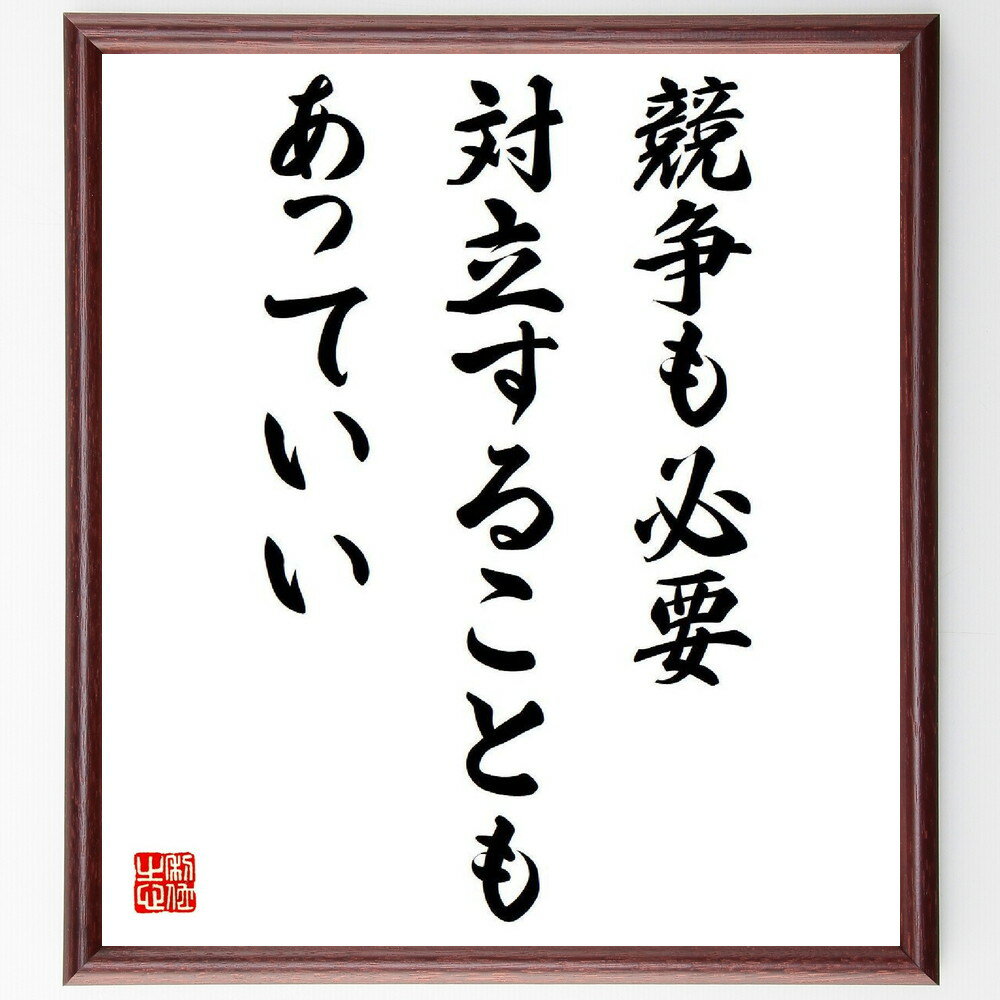 競争も必要
対立することも
あっていい